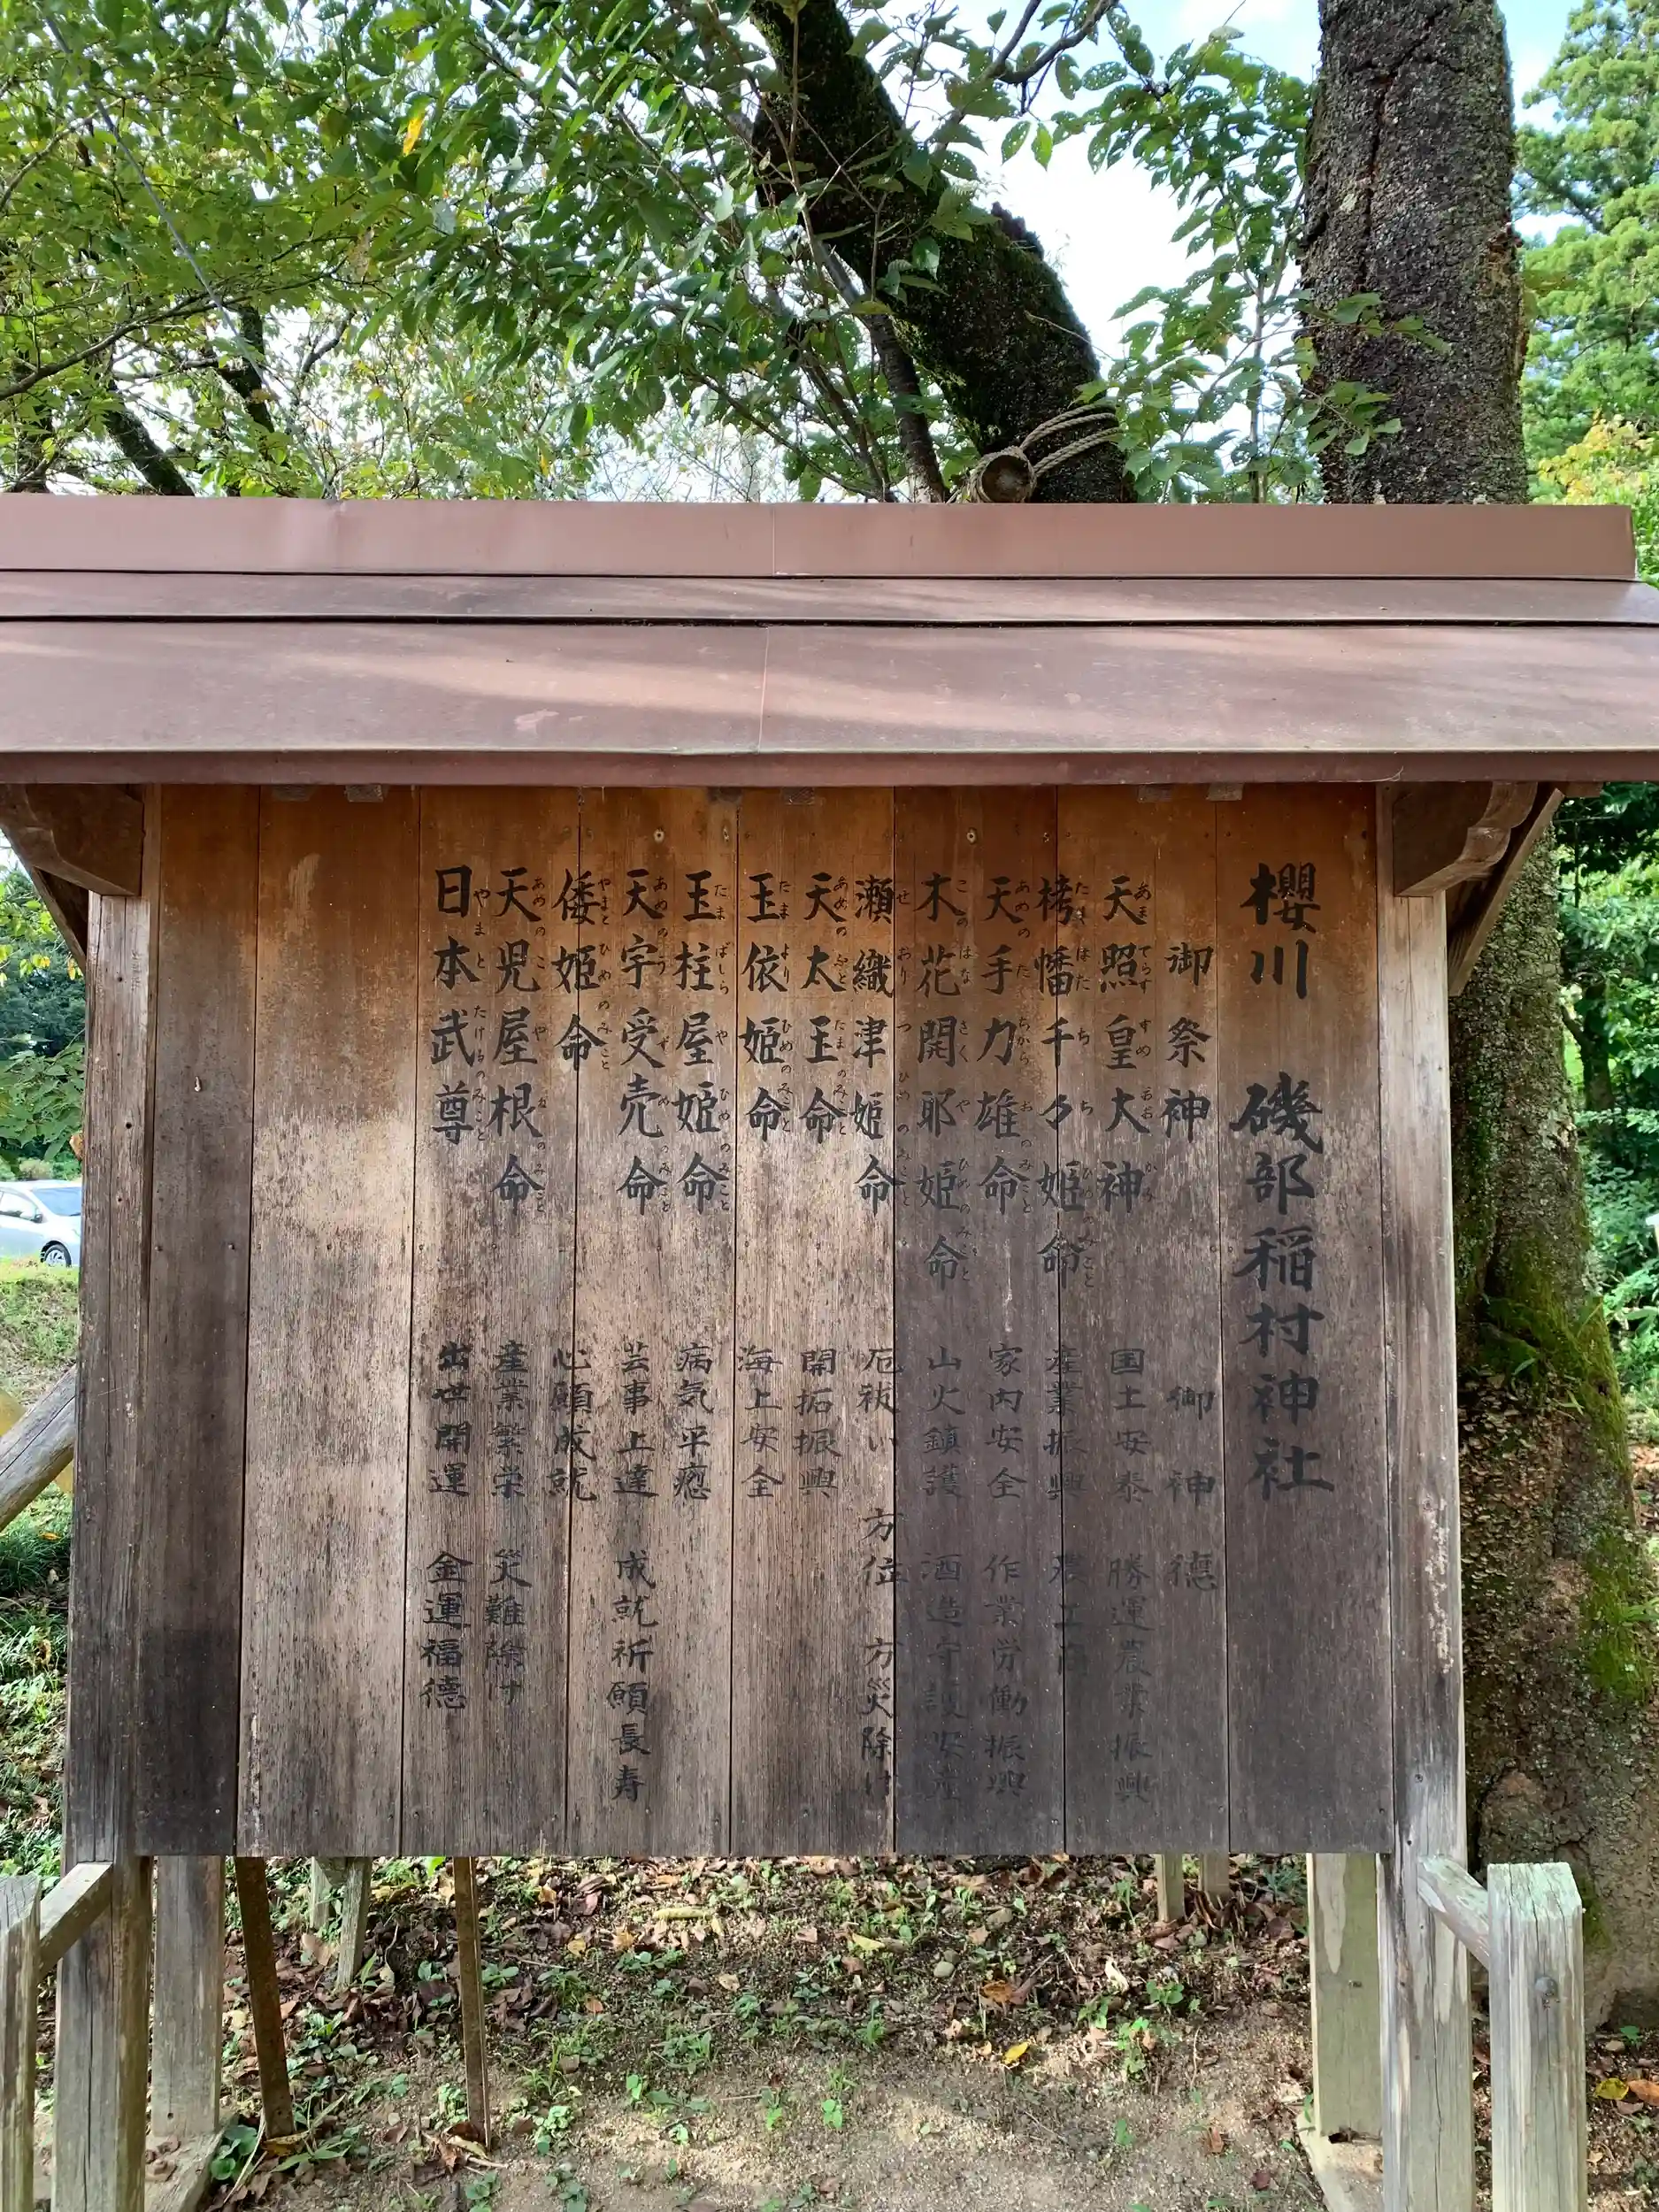 櫻川 磯部稲村神社
御祭神 御神德
天照皇大神 国土安泰 勝運農業振興
栲幡千々姫命 産業振興 農工商
天手力雄命 家内安全 作業労働振興
木花開耶姫命 山火鎮護 酒造守護安産
瀬織津姫命 厄祓い 方位 方災除け
天太玉命 開拓振興
玉依姫命 海上安全
玉柱屋姫命 病気平癒
天宇受売命 芸事上達 成就祈願長寿
倭姫命 心願成就
天児屋根命 産業繁栄 災難除け
日本武尊 出世開運 金運福德